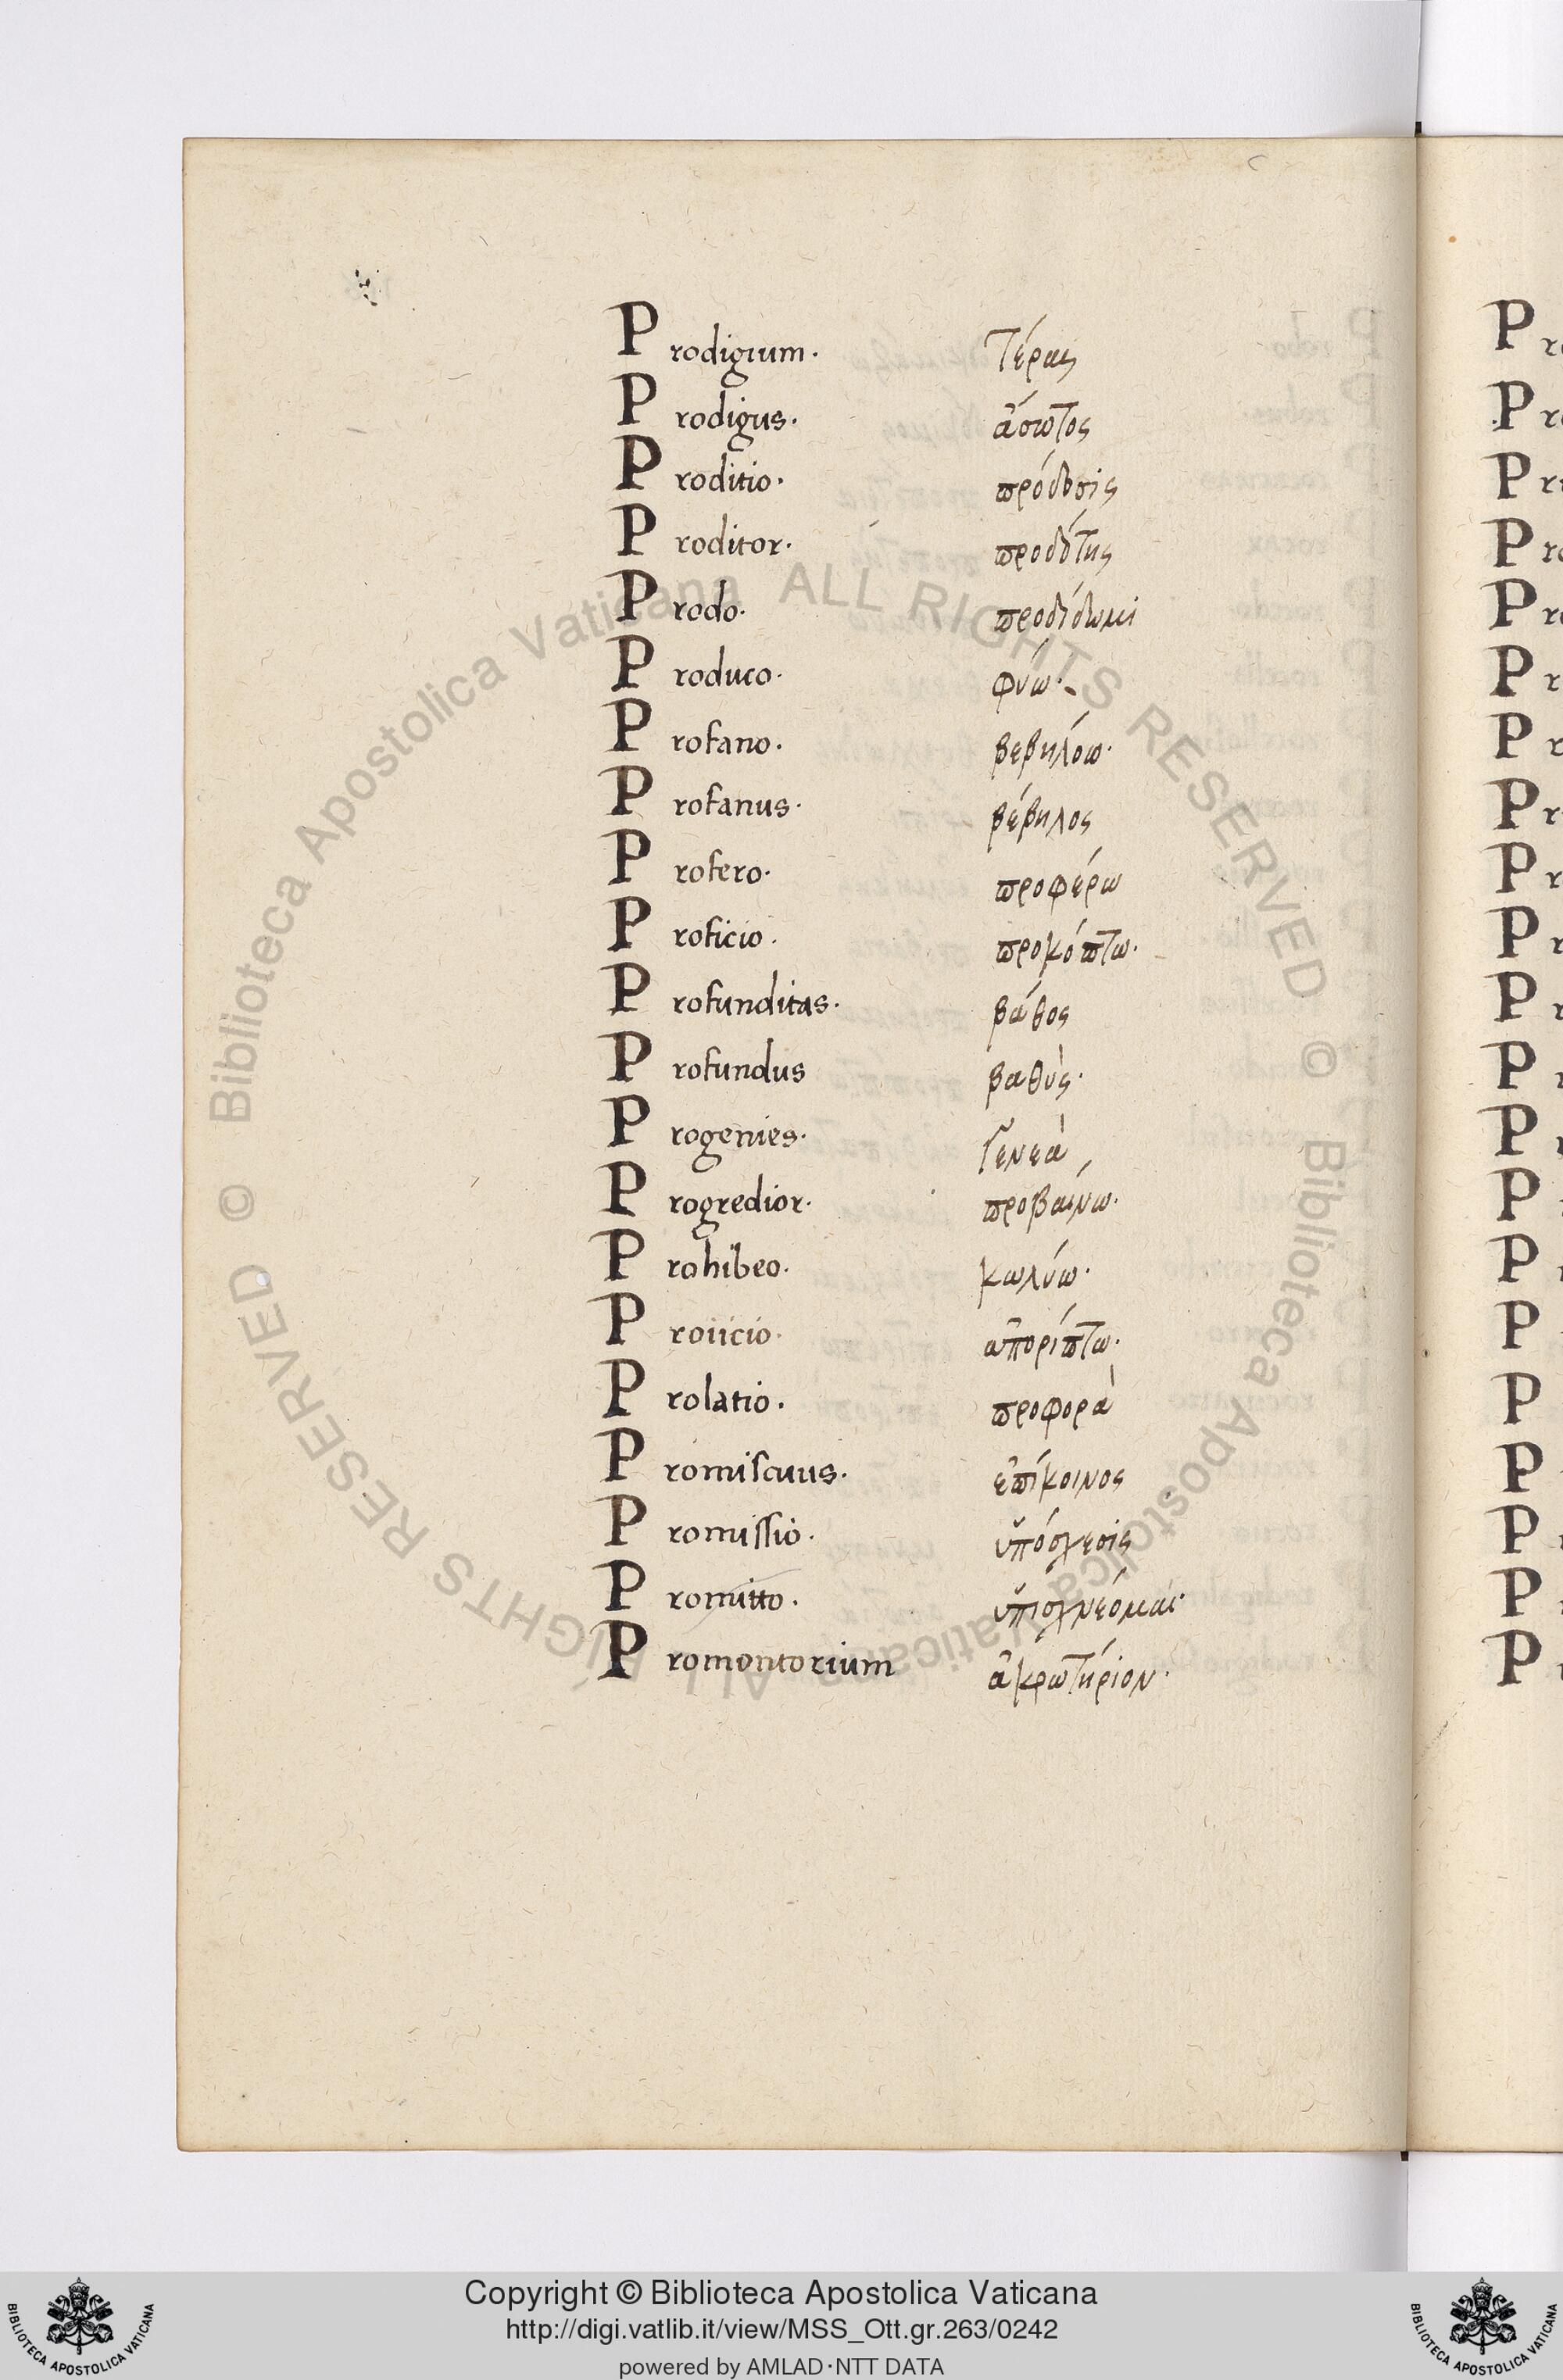 Prodigium. τέρας
Prodigus. ἄσωτος
Proditio. πρόδοσις
Proditor. προδότης
Prodo. προδίδωμι
Produco. φύω.
Profano. βεβηλόω.
Profanus. βέβηλος
Profero. προφέρω
Proficio. προκόπτω.
Profunditas. βάθος
Profundus βαθὺς.
Progenies. γενεὰ
Progredior. προβαίνω.
Prohibeo. κωλύω.
Proiicio. ἀπορίπτω.
Prolatio. προφορὰ
Promiscuus. ἐπίκοινος
Promissio. ὑπόσχεσις
Promitto. ὑπισχνέομαι.
Promontorium ἀκρωτήριον.
Biblioteca Apostolica Vaticana ALL RIGHTS RESERVED ©
Biblioteca Apostolica Vaticana ALL RIGHTS RESERVED ©
Copyright © Biblioteca Apostolica Vaticana
http://digi.vatlib.it/view/MSS_Ott.gr.263/0242
powered by AMLAD·NTT DATA
BIBLIOTECA APOSTOLICA VATICANA
BIBLIOTECA APOSTOLICA VATICANA